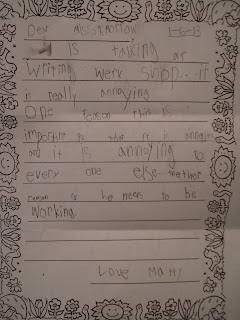 Dear Miss Morrow
Is talking at
Writing werk shop... it
is really annoying
One reason this is
importin is that it is annoying
and it is annoying to
every one else. another
reason is he needs to be
working.
Love Matty